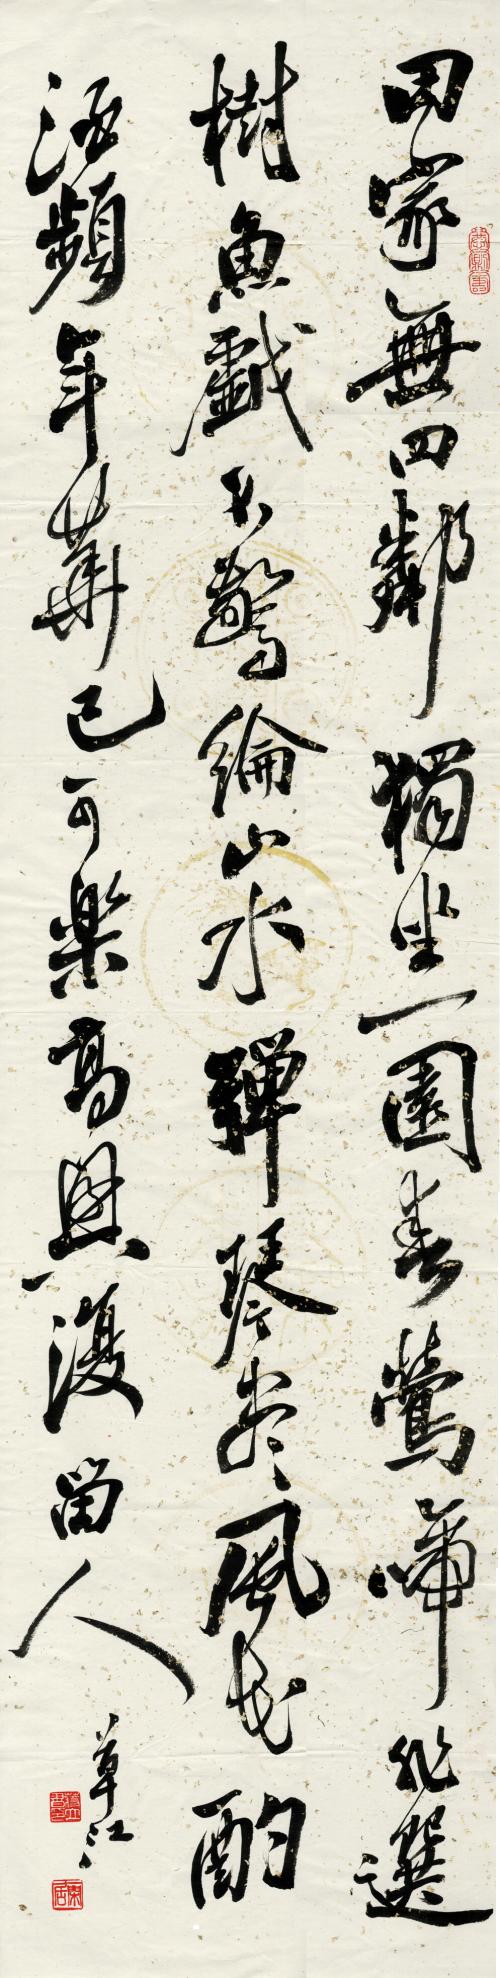 田家無四鄰獨坐一園春鶯啼非選
樹魚戲不驚綸山水彈琴盡風花酌
酒頻年華已可樂高興復留人
草江